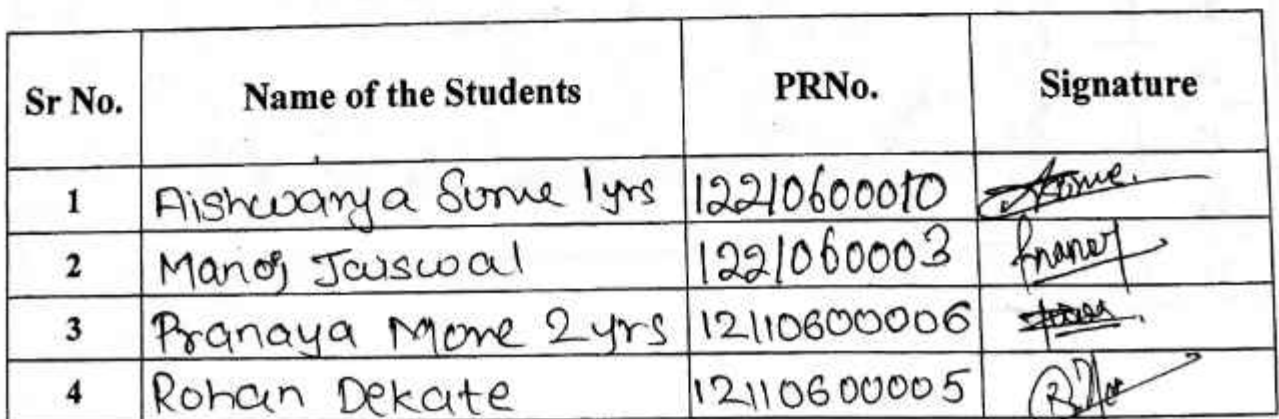 Sr No. Name of the Students PRNo. Signature
1 Aishwarya Surve 1yrs 12210600010
2 Manoj Jaiswal 1221060003 Manoj
3 Pranaya More 2 yrs 12110600006
4 Rohan Dekate 12110600005